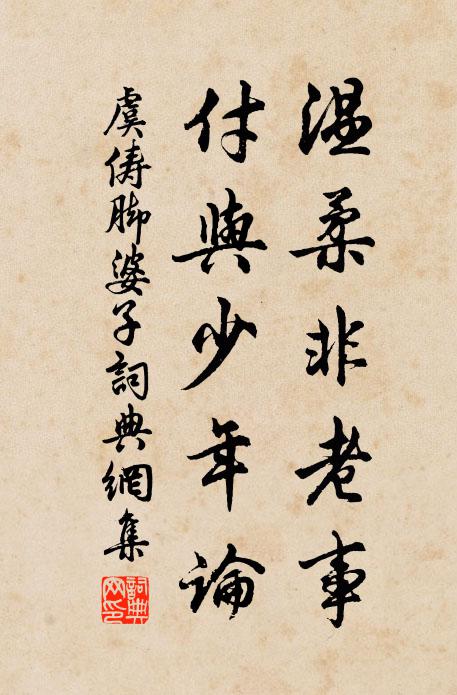 温柔非老事
付與少年論
虞儔脚婆子詞典網集
詞典網印